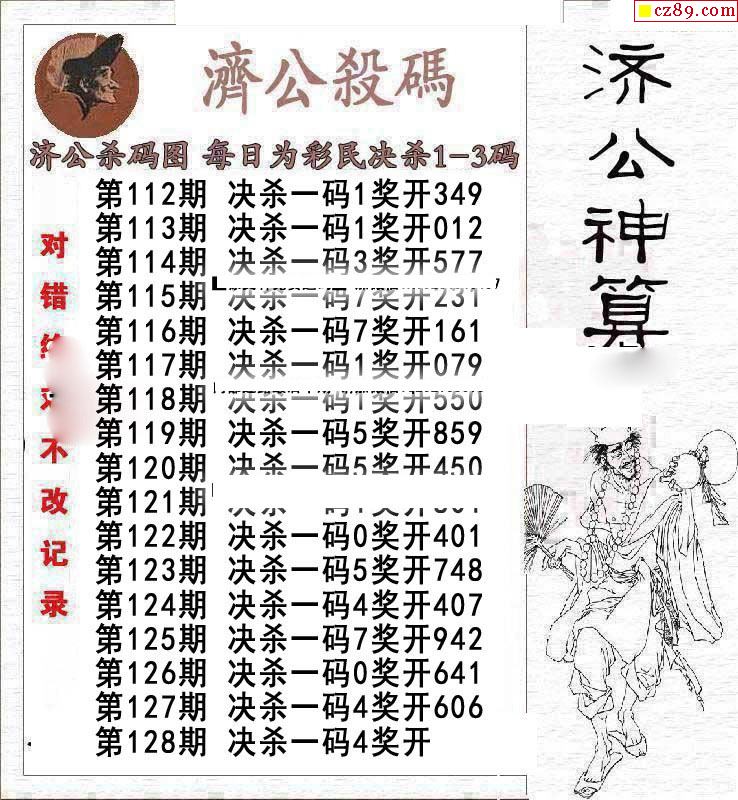 cz89.com
濟公殺碼
济公神算
济公杀码图 每日为彩民决杀1-3码
对错
不改记录
第112期 决杀一码1奖开349
第113期 决杀一码1奖开012
第114期 决杀一码3奖开577
第115期 决杀一码7奖开231
第116期 决杀一码7奖开161
第117期 决杀一码1奖开079
第118期 决杀一码1奖开550
第119期 决杀一码5奖开859
第120期 决杀一码5奖开450
第121期
第122期 决杀一码0奖开401
第123期 决杀一码5奖开748
第124期 决杀一码4奖开407
第125期 决杀一码7奖开942
第126期 决杀一码0奖开641
第127期 决杀一码4奖开606
第128期 决杀一码4奖开